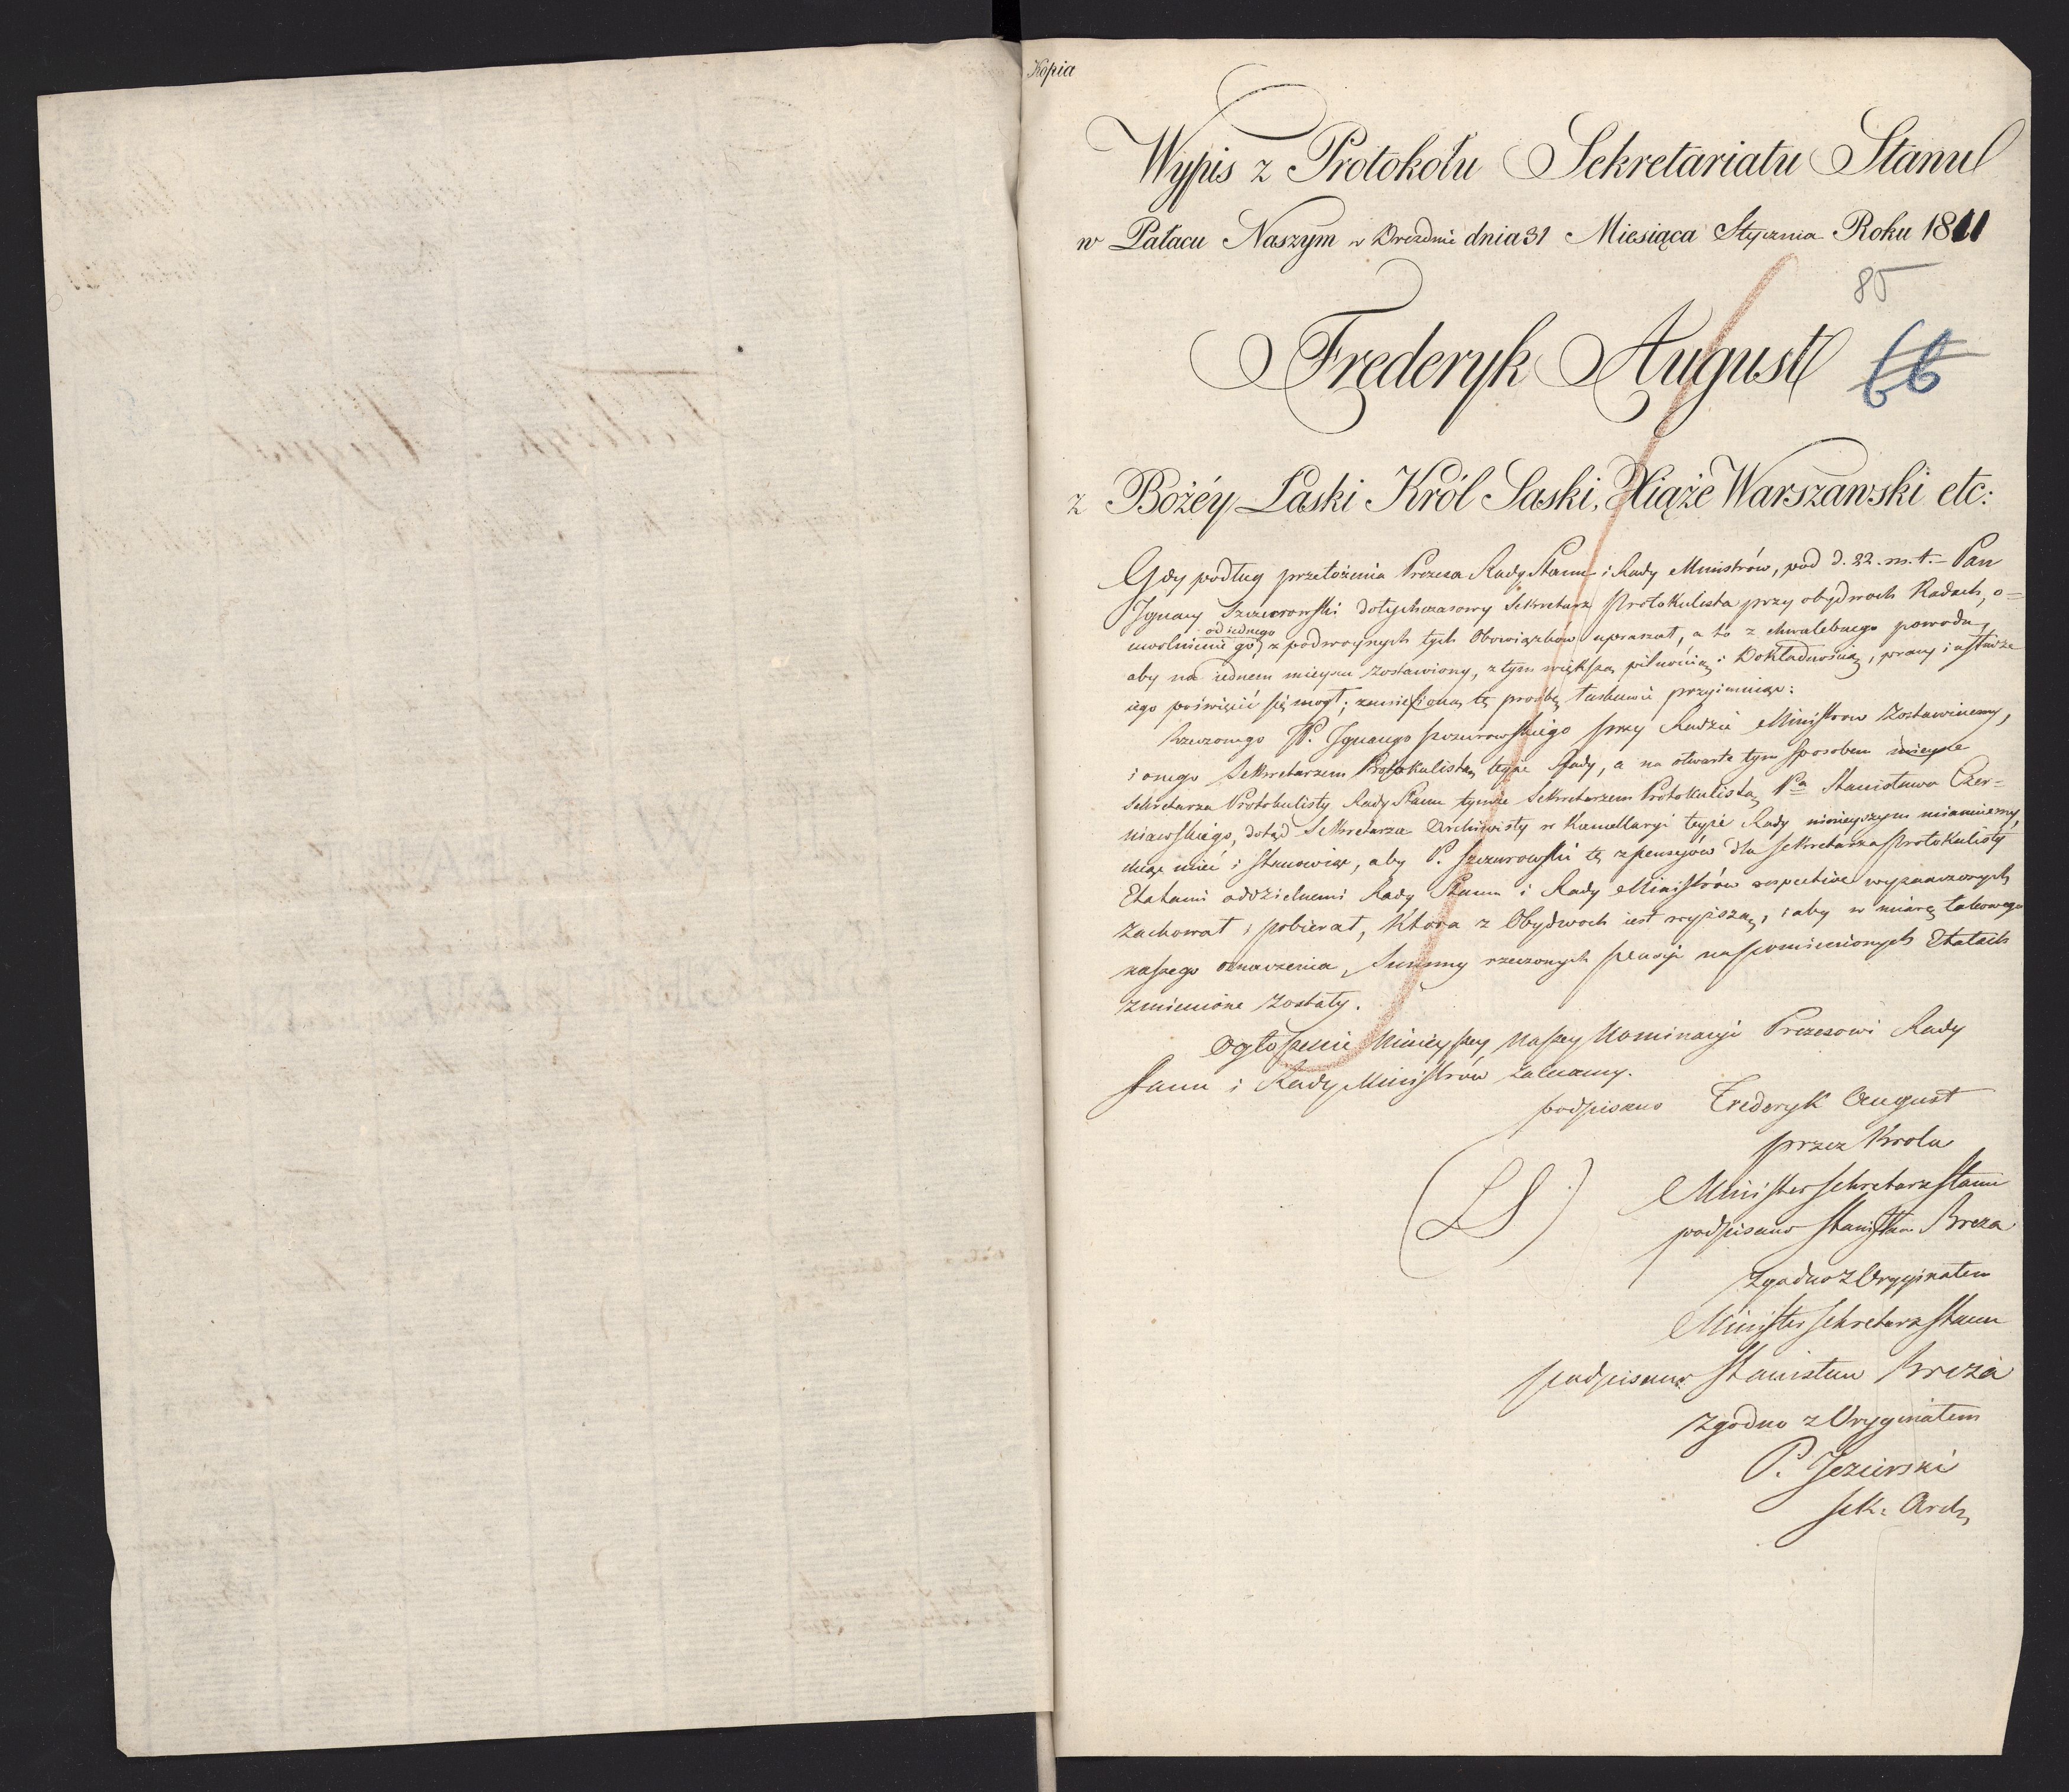 Kopia
Wypis z Protokołu Sekretariatu Stanu
w Pałacu Naszym w Dreznie dnia 31 Miesiąca Stycznia Roku 1811
85
Frederyk August
66
z Bożéy Łaski Król Saski, Xiąże Warszawski etc:
Gdy podług przełożenia Prezesa Rady Stanu i Rady Ministrów, pod d. 22. m. t. Pan
Ignacy Szczurowski dotychczasowy Sekretarz Protokulista przy obydwóch Radach, o=
od iednego
uwolnienie go z podwoynych tych Obowiązkow upraszał, a to z chwalebnego powodu,
aby na iednem mieyscu zostawiony, z tym większą pilnością i Dokładnością, pracy i usłudze
iego poświęcić się mogł; zaniesioną tę prośbę łaskawie przyimuiąc:
Rzeczonego P. Ignacego Szczurowskiego przy Radzie Ministrow Zostawiuemy,
i onego Sekretarzem Protokulistą teyże Rady, a na otwarte tym sposobem mieysce
Sekretarza Protokulisty Rady Stanu tymże Sekretarzem Protokulistą Pa Stanisława Czer=
niawskiego, dotąd Sekretarza Archiwisty w Kancellaryi teyże Rady ninieyszym mianuiemy,
chcąc mieć i stanowiąc, aby P. Szczurowski tę z pensyów dla Sekretarza Protokulisty
Etatami oddzielnemi Rady Stanu i Rady Ministrów respective wyznaczonych
Zachował i pobierał, Która z Obydwoch iest wyższą, i aby w miarę takowego
naszego oznaczenia, Summy rzeczonych pensyi na pomienionych Etatach
zmienione zostały.
Ogłoszenie ninieyszey Naszey Nominacyi Prezesowi Rady
Stanu i Rady Ministrów zalecamy.
podpisano Frederyk August
przez Krola
Minister Sekretarz Stanu
(LS) podpisano Stanisław Breza
Zgodno z Oryginałem
Minister Sekretarz Stanu
podpisano Stanisław Breza
Zgodno z Oryginałem
P. Jezierski
Sek: Arch.